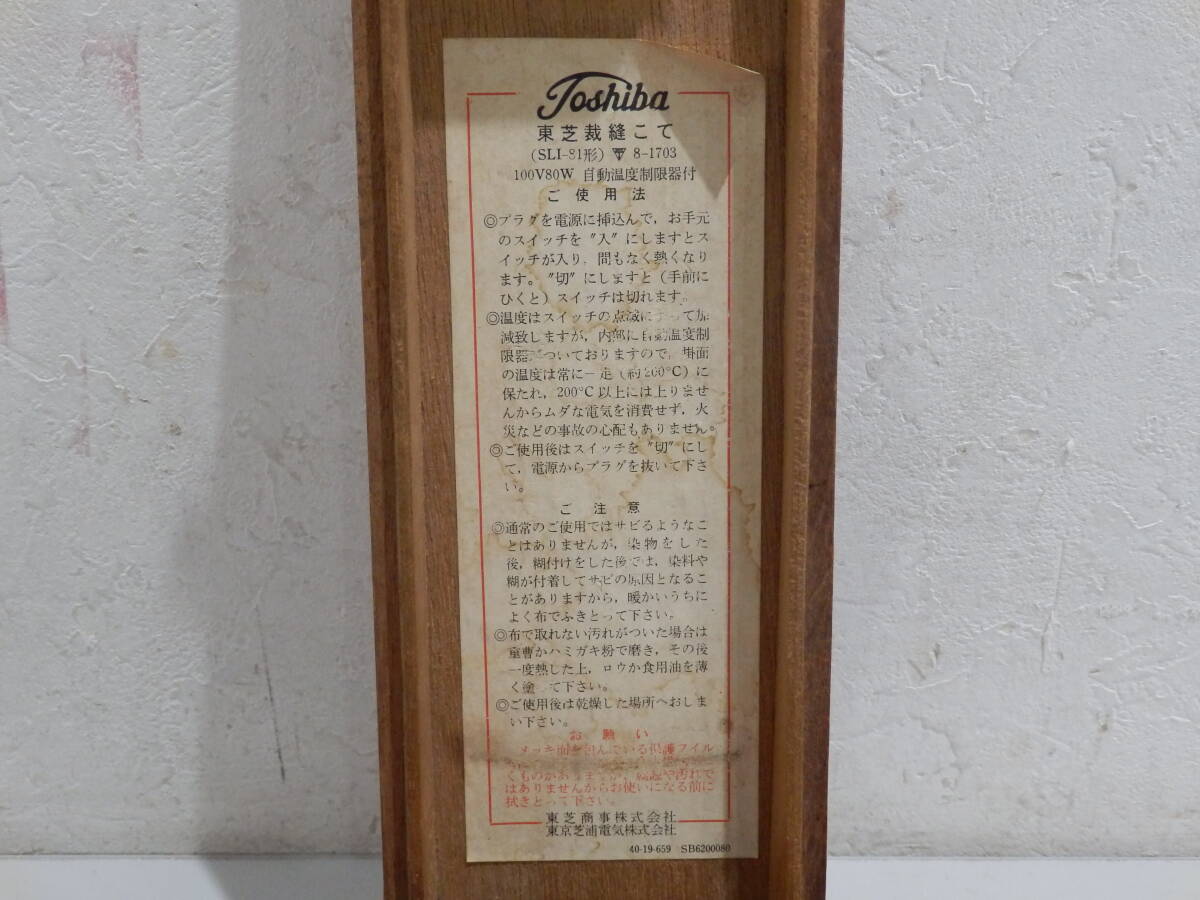 Toshiba
東芝裁縫こて
(SLI-81形) 〒 8-1703
100V80W 自動温度制限器付
ご使用法
◎プラグを電源に挿込んで，お手元
のスイッチを〝入〞にしますとス
イッチが入り，間もなく熱くなり
ます。〝切〞にしますと（手前に
ひくと）スイッチは切れます。
◎温度はスイッチの点滅によって加
減致しますが，内部に自動温度制
限器がついておりますので，掛面
の温度は常に一定（約200°C）に
保たれ，200°C以上には上りませ
んからムダな電気を消費せず，火
災などの事故の心配もありません。
◎ご使用後はスイッチを〝切〞にし
て，電源からプラグを抜いて下さ
い。
ご注意
◎通常のご使用ではサビるようなこ
とはありませんが，染物をした
後，糊付けをした後では，染料や
糊が付着してサビの原因となるこ
とがありますから，暖かいうちに
よく布でふきとって下さい。
◎布で取れない汚れがついた場合は
重曹かハミガキ粉で磨き，その後
一度熱した上，ロウか食用油を薄
く塗 て下さい。
◎ご使用後は乾燥した場所へおしま
い下さい。
お願い
メッキ面を包んでいる保護フイル
くものがありますが，
や汚れで
はありませんからお使いになる前に
拭きとって下さい。
東芝商事株式会社
東京芝浦電気株式会社
40-19-659 SB6200080